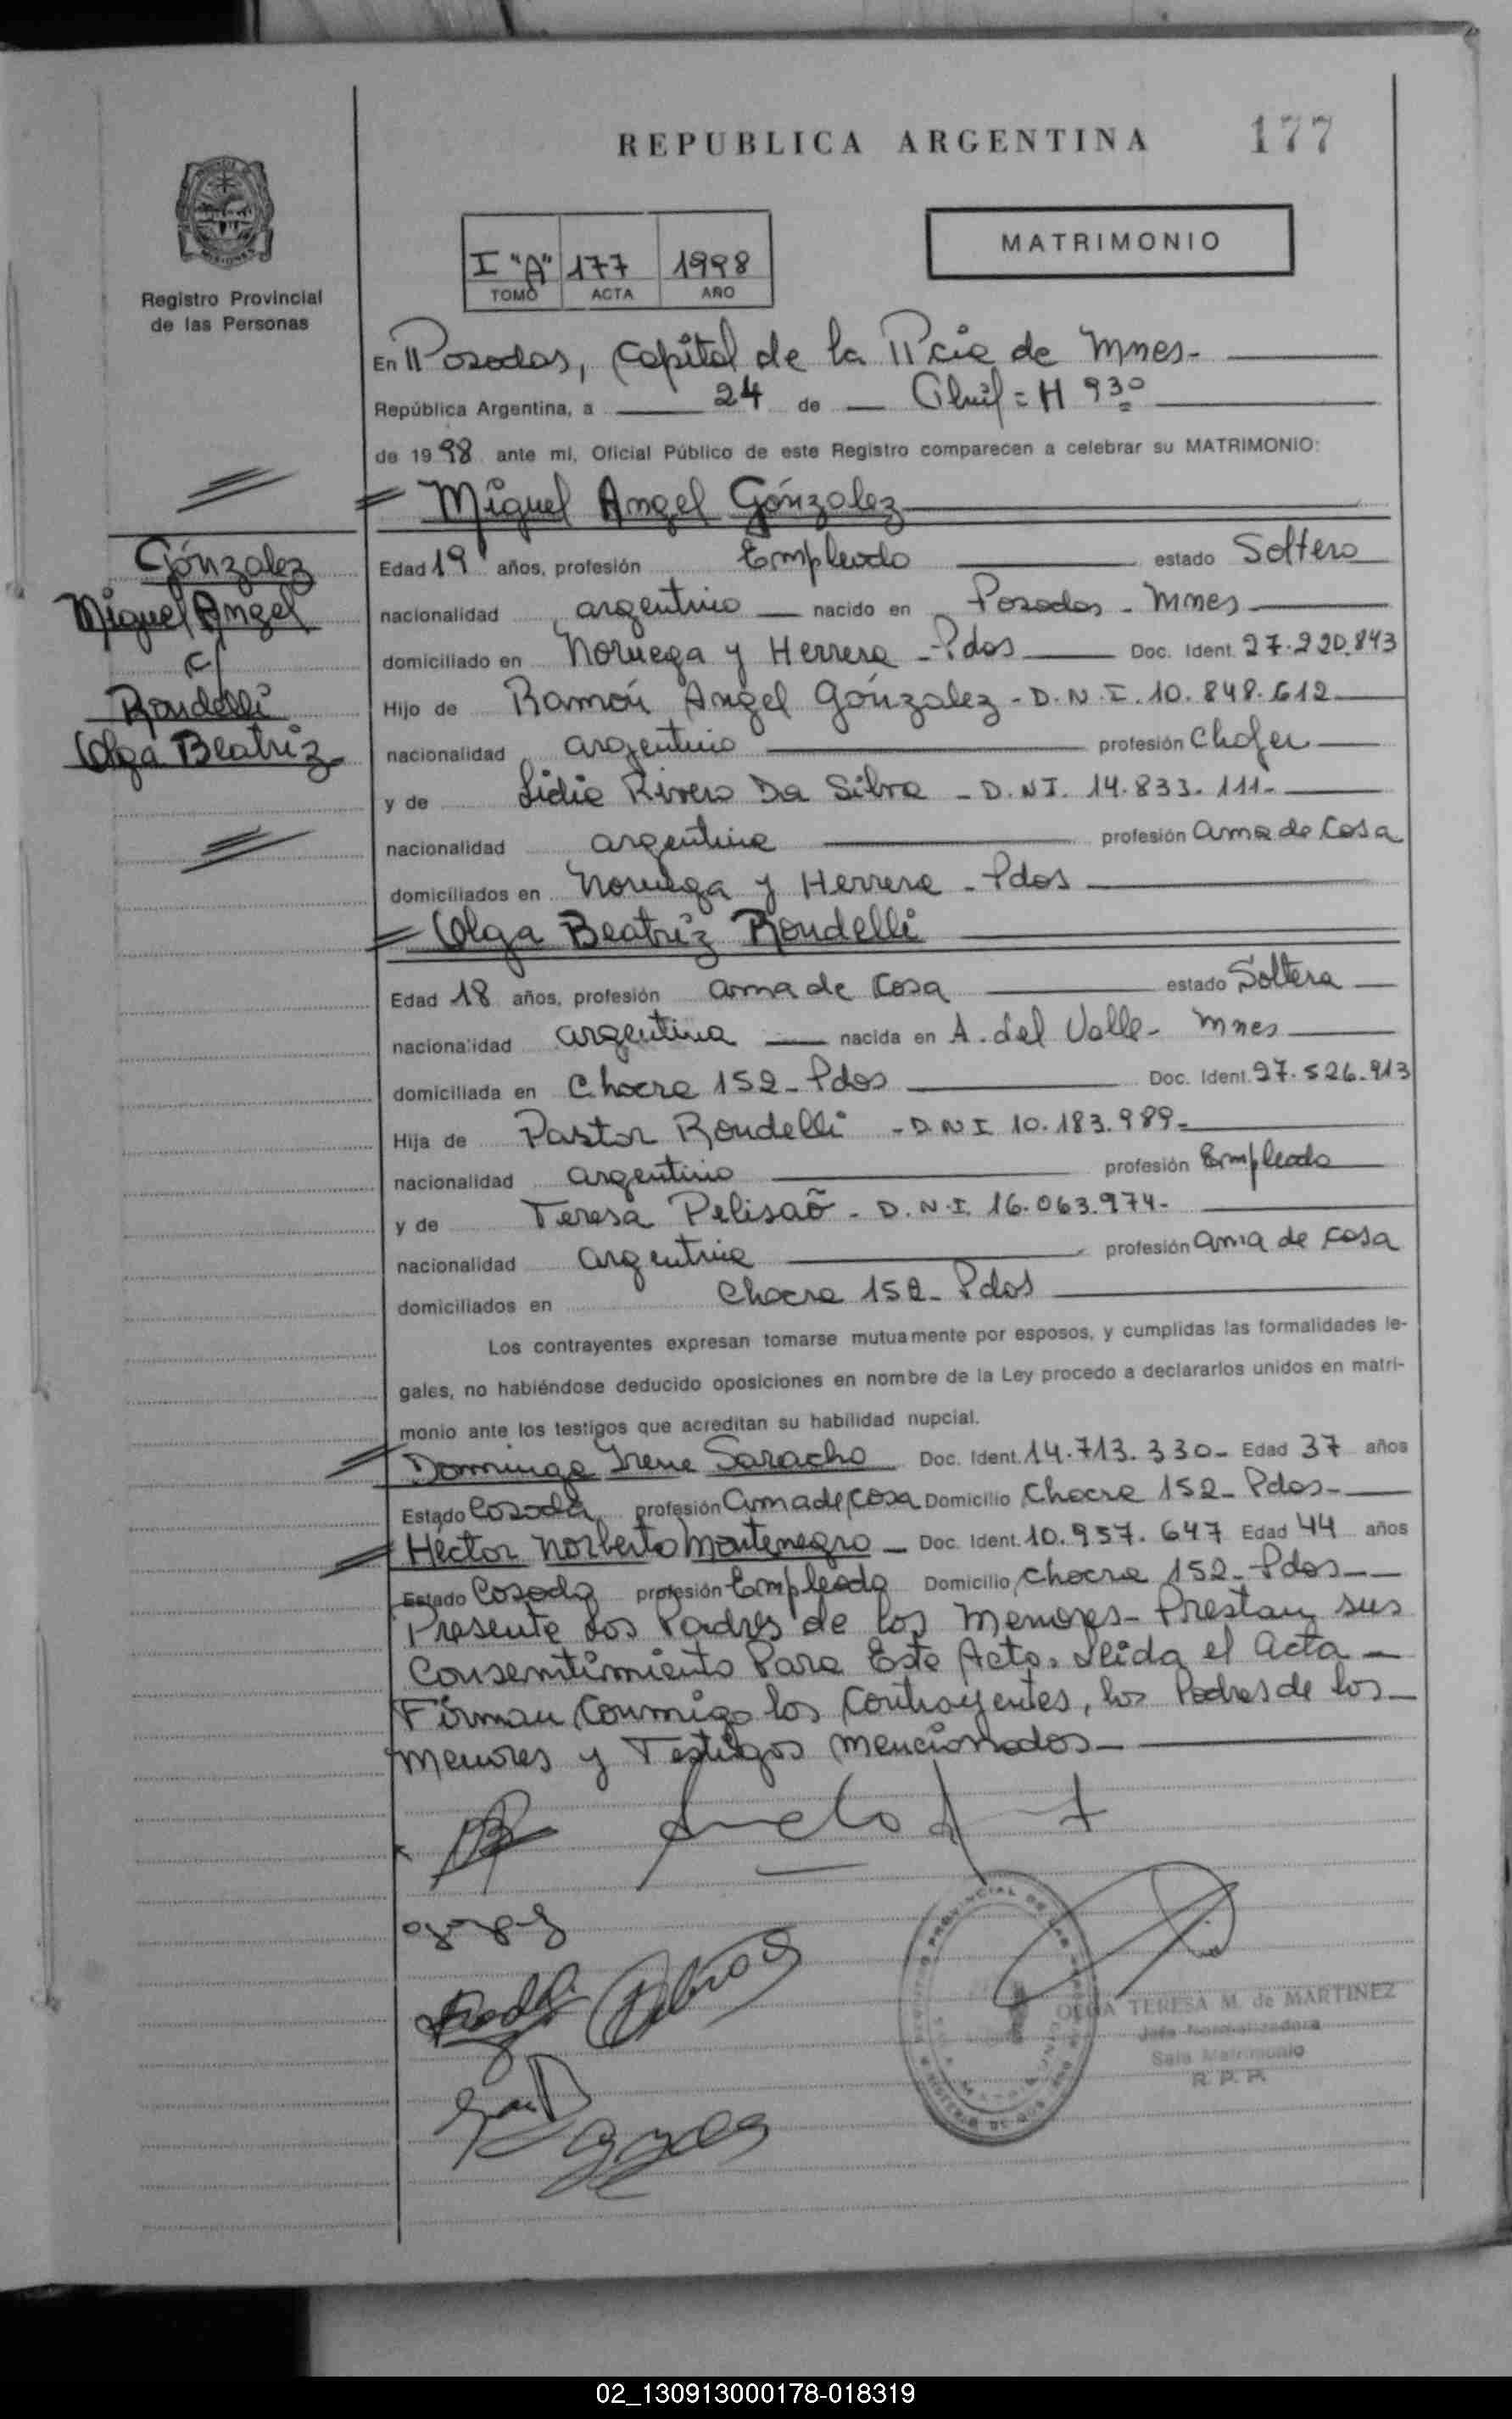 REPUBLICA ARGENTINA 177
Registro Provincial
de las Personas
I "A" 177 1998
TOMO ACTA AÑO
MATRIMONIO
En Posadas, Capital de la Pcia de Mnes-
República Argentina, a 24 de Abril = H 9 30
de 1998 ante mí, Oficial Público de este Registro comparecen a celebrar su MATRIMONIO:
Miguel Angel Gónzalez
Gónzalez
Miguel Angel
c/
Rondelli
Olga Beatriz
Edad 19 años, profesión Empleado estado Soltero
nacionalidad argentino nacido en Posadas - Mnes
domiciliado en Noruega y Herrera - Pdas Doc. Ident. 27.220.843
Hijo de Ramón Angel Gónzalez - D.N.I. 10.848.612
nacionalidad argentino profesión Chofer
y de Lidia Rivero Da Silva - D.N.I. 14.833.111-
nacionalidad argentina profesión ama de Casa
domiciliados en Noruega y Herrera - Pdas
Olga Beatriz Rondelli
Edad 18 años, profesión ama de Casa estado Soltera
nacionalidad argentina nacida en A. del Valle - Mnes
domiciliada en Chacra 152 - Pdas Doc. Ident. 27.526.913
Hija de Pastor Rondelli - D.N.I 10.183.989-
nacionalidad argentino profesión Empleado
y de Teresa Pelisaõ - D.N.I. 16.063.974-
nacionalidad argentina profesión ama de casa
domiciliados en Chacra 152 - Pdas
Los contrayentes expresan tomarse mutuamente por esposos, y cumplidas las formalidades le-
gales, no habiéndose deducido oposiciones en nombre de la Ley procedo a declararlos unidos en matri-
monio ante los testigos que acreditan su habilidad nupcial.
Dominga Irene Saracho Doc. Ident. 14.713.330- Edad 37 años
Estado Casada profesión ama de casa Domicilio Chacra 152 - Pdas-
Héctor Norberto Montenegro - Doc. Ident. 10.957.647 Edad 44 años
Estado Casado profesión Empleado Domicilio Chacra 152 - Pdas-
Presente los Padres de los Menores - Prestan sus
Consentimiento Para Este Acto. Leida el Acta -
Firman Conmigo los Contrayentes, los Padres de los -
menores y Testigos mencionados -
OLGA TERESA M. de MARTINEZ
Jefa Normalizadora
Sala Matrimonio
R. P. P.
02_130913000178-018319